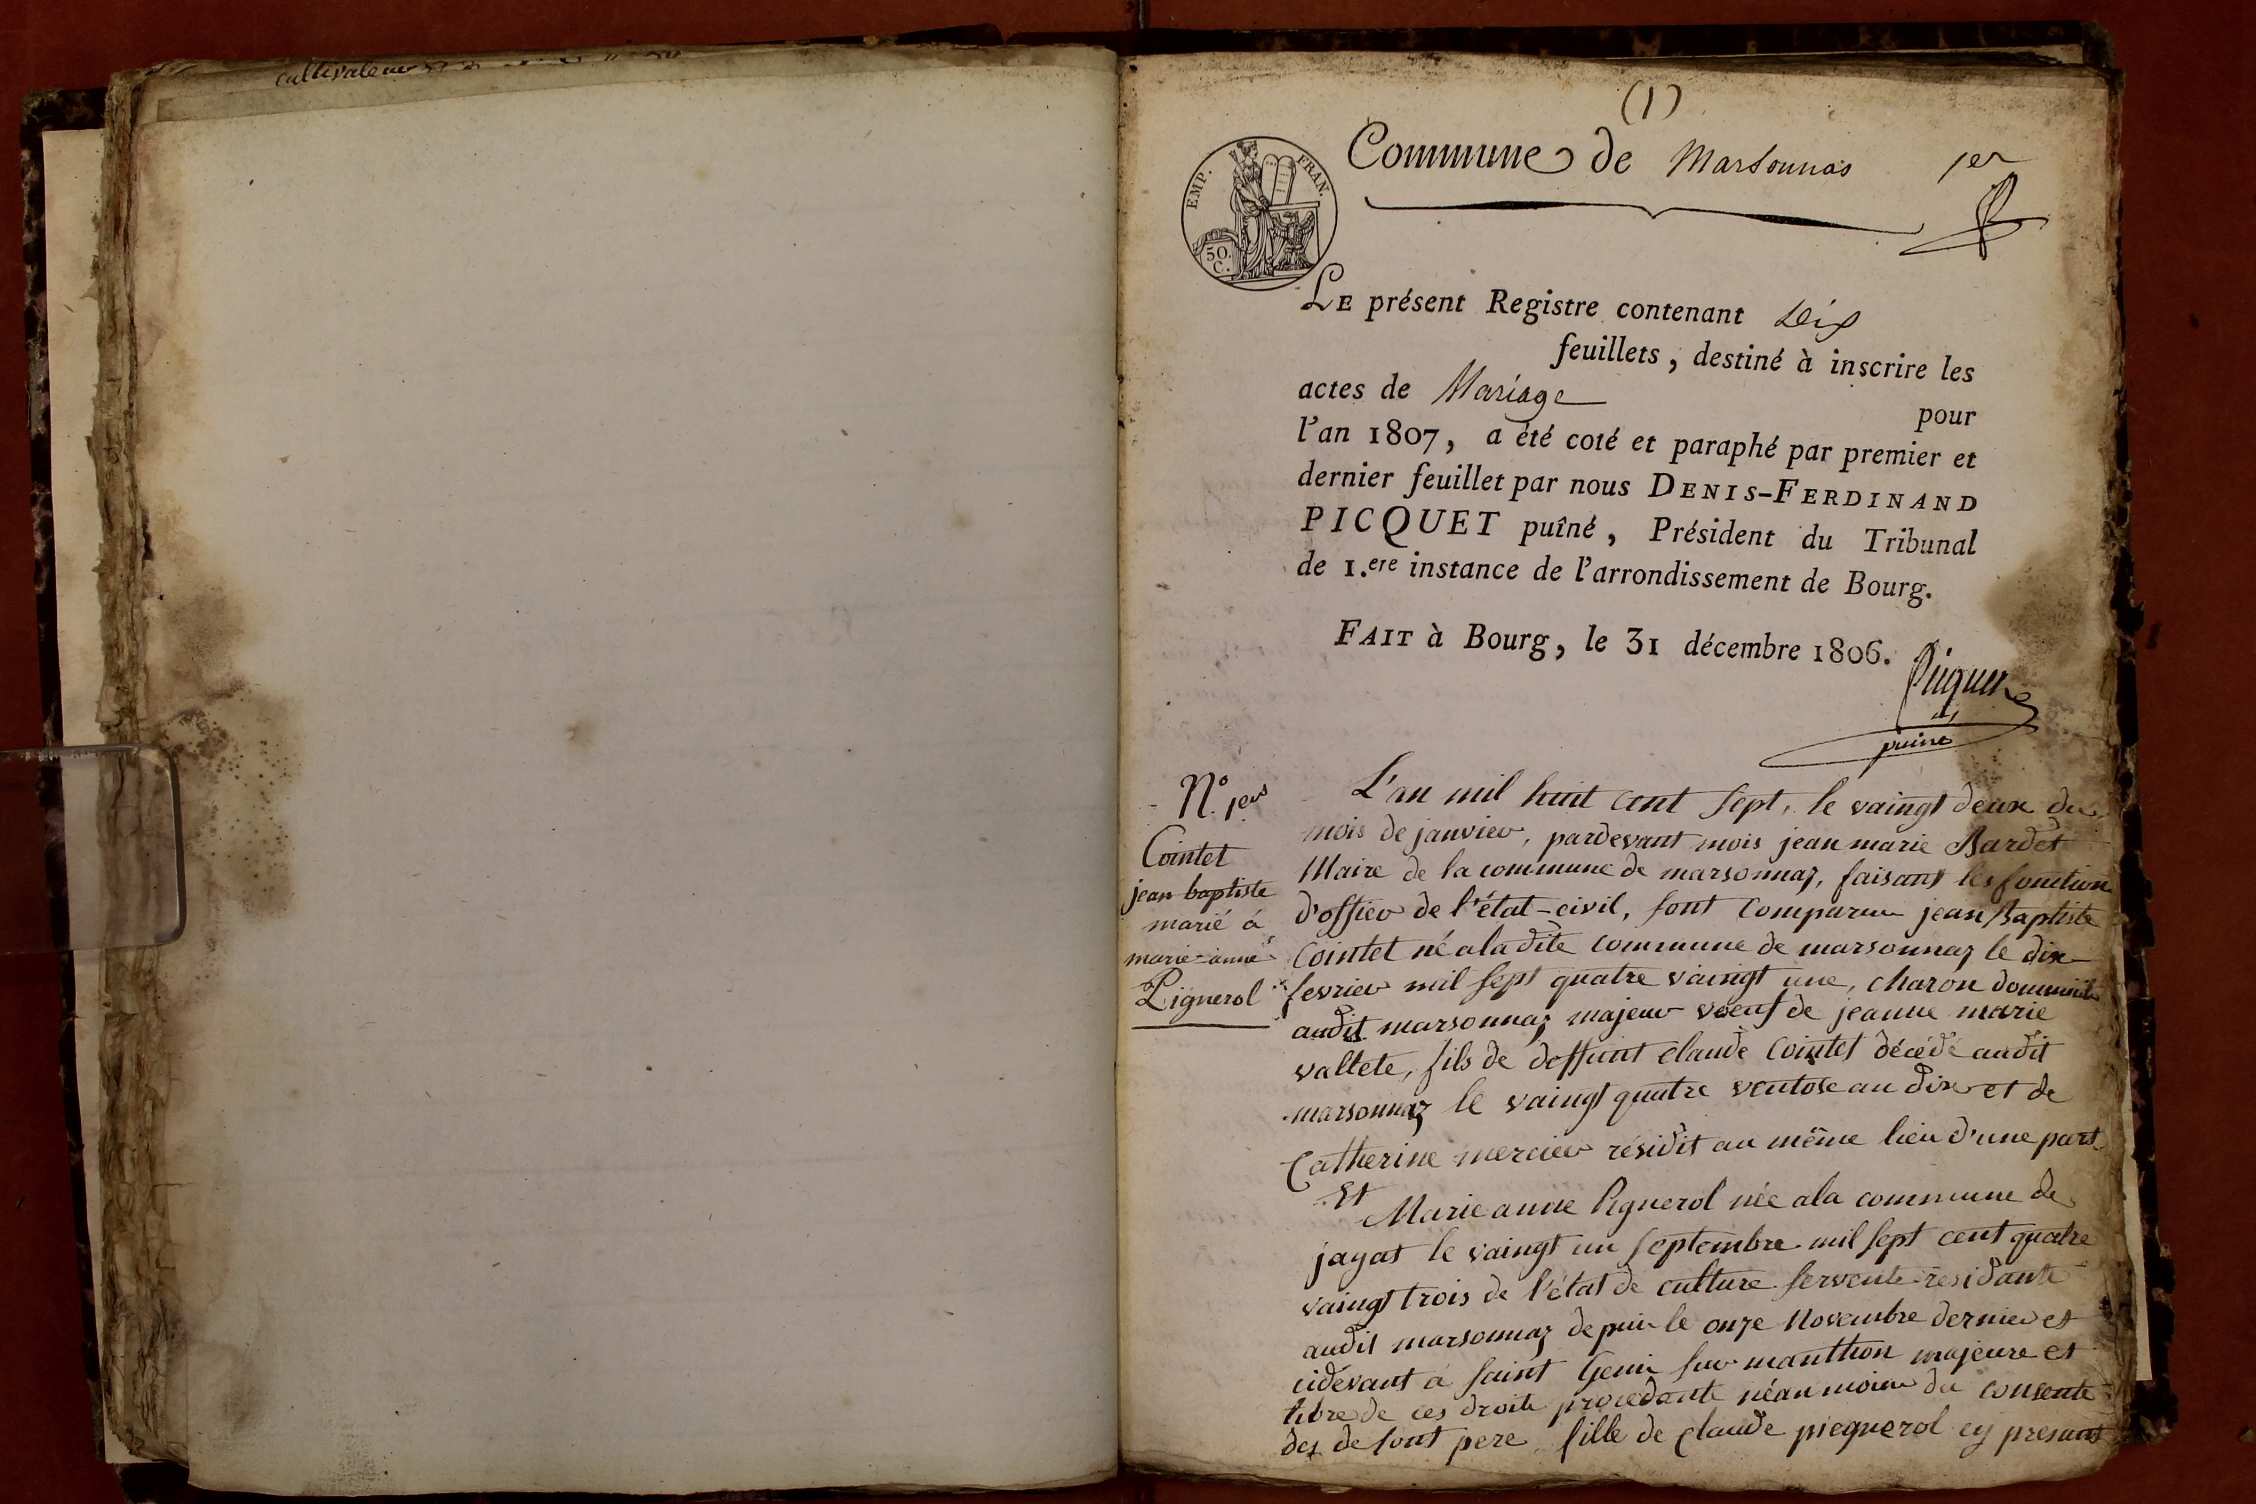 cultivateur
(1)
Commune de Marsonnas 1er
EMP. FRAN.
50.
C.
LE présent Registre contenant Six
feuillets, destiné à inscrire les
actes de Mariage
pour
l'an 1807, a été coté et paraphé par premier et
dernier feuillet par nous DENIS-FERDINAND
PICQUET puîné, Président du Tribunal
de 1.ere instance de l'arrondissement de Bourg.
FAIT à Bourg, le 31 décembre 1806.
Picquet
puiné
N.o 1er
Cointet
jean baptiste
marié á
marie-anne
Pignerol
L'an mil huit cent sept, le vaingt deux du
mois de janvier, pardevant mois jean marie Bardet
Maire de la commune de marsonnaz, faisant les fonction
d'officer de l'état-civil, sont comparu jean Baptiste
Cointet né a la dite commune de marsonnaz le dix
fevrier mil sept quatre vaingt une, charon dommicile
audit marsonnaz majeur voeuf de jeanne marie
vallete, fils de deffunt claude Cointet décédé audit
marsonnaz le vaingt quatre ventose an dix et de
Catherine mercier résidit au même lieu d'une part
Et Marie anne Pignerol née a la commune de
jayat le vaingt un septembre mil sept cent quatre
vaingt trois de l'état de culture servente residante
audit marsonnaz depuis le onze Novembre dernier et
cidevant á saint Genis sur manthon majeure et
libre de ces droits procedante néanmoins du consente
de son pere, fille de claude piegnerol cy presant